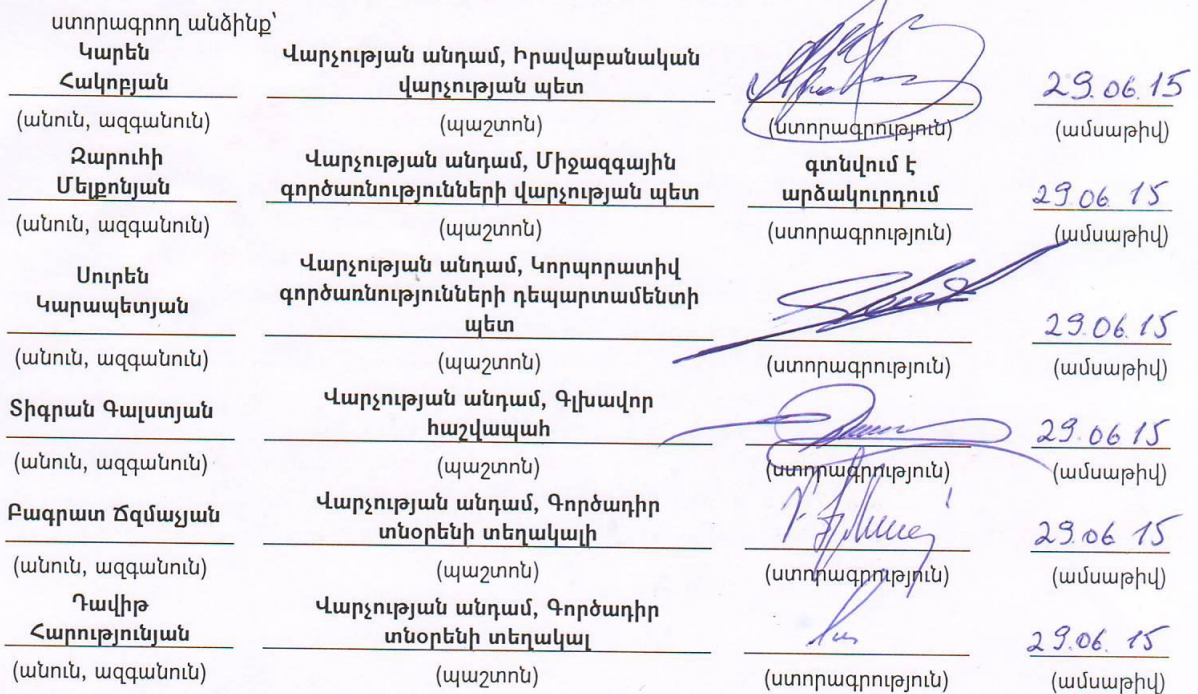 ստորագրող անձինք՝
Կարեն Հակոբյան Վարչության անդամ, Իրավաբանական վարչության պետ 29.06.15
(անուն, ազգանուն) (պաշտոն) (ստորագրություն) (ամսաթիվ)
Զարուհի Մելքոնյան Վարչության անդամ, Միջազգային գործառնությունների վարչության պետ գտնվում է արձակուրդում 29.06.15
(անուն, ազգանուն) (պաշտոն) (ստորագրություն) (ամսաթիվ)
Սուրեն Կարապետյան Վարչության անդամ, Կորպորատիվ գործառնությունների դեպարտամենտի պետ 29.06.15
(անուն, ազգանուն) (պաշտոն) (ստորագրություն) (ամսաթիվ)
Տիգրան Գալստյան Վարչության անդամ, Գլխավոր հաշվապահ 29.06.15
(անուն, ազգանուն) (պաշտոն) (ստորագրություն) (ամսաթիվ)
Բագրատ Ճզմաչյան Վարչության անդամ, Գործադիր տնօրենի տեղակալի 29.06.15
(անուն, ազգանուն) (պաշտոն) (ստորագրություն) (ամսաթիվ)
Դավիթ Հարությունյան Վարչության անդամ, Գործադիր տնօրենի տեղակալ 29.06.15
(անուն, ազգանուն) (պաշտոն) (ստորագրություն) (ամսաթիվ)